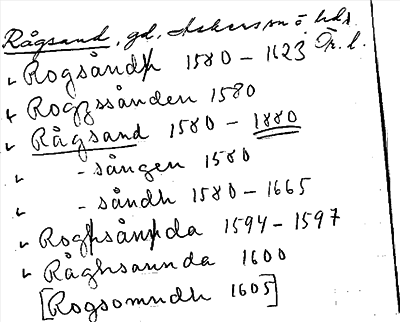 Rågsand, gd,
Rogsåndh 1580 – 1623 Fr. l.
Rogzssånden 1580
Rågsand 1580 – 1880
- sången 1580
- såndh 1580 – 1665
Roghsånda 1594 – 1597
Råghsannda 1600
[Rogsomndh 1605]